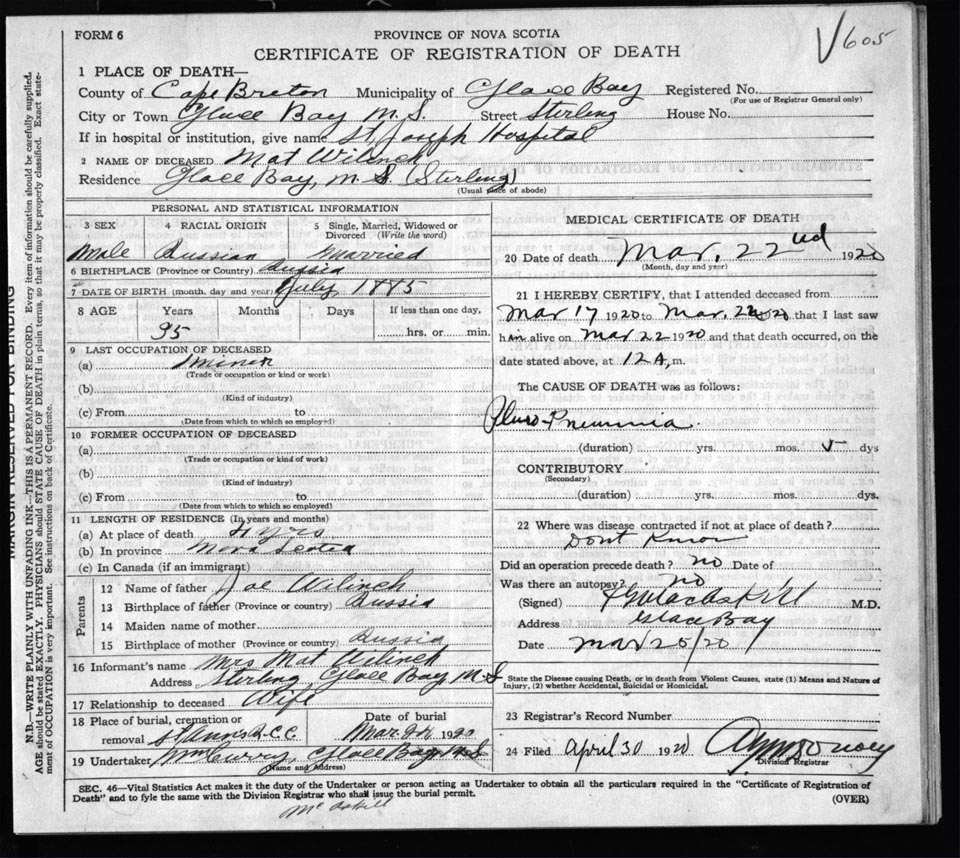 FORM 6
PROVINCE OF NOVA SCOTIA
CERTIFICATE OF REGISTRATION OF DEATH
605
1 PLACE OF DEATH—
County of Cape Breton Municipality of Glace Bay Registered No.
(For use of Registrar General only)
City or Town Glace Bay N.S. Street Sterling House No.
If in hospital or institution, give name St Joseph Hospital
2 NAME OF DECEASED Mat Wilinch
Residence Glace Bay, N.S. (Sterling)
(Usual place of abode)
PERSONAL AND STATISTICAL INFORMATION
3 SEX 4 RACIAL ORIGIN 5 Single, Married, Widowed or Divorced (Write the word)
Male Russian Married
6 BIRTHPLACE (Province or Country) Russia
7 DATE OF BIRTH (month, day and year) July 1885
8 AGE Years Months Days If less than one day,
35 hrs. or min.
9 LAST OCCUPATION OF DECEASED
(a) miner
(Trade or occupation or kind or work)
(b)
(Kind of industry)
(c) From to
(Date from which to which so employed)
10 FORMER OCCUPATION OF DECEASED
(a)
(Trade or occupation or kind of work)
(b)
(Kind of industry)
(c) From to
(Date from which to which so employed)
11 LENGTH OF RESIDENCE (In years and months)
(a) At place of death yrs
(b) In province Nova Scotia
(c) In Canada (if an immigrant)
Parents
12 Name of father Joe Wilinch
13 Birthplace of father (Province or country) Russia
14 Maiden name of mother
15 Birthplace of mother (Province or country) Russia
16 Informant's name Mrs Mat Wilinch
Address Sterling, Glace Bay, N.S
17 Relationship to deceased Wife
18 Place of burial, cremation or removal St Anns R.C.C. Date of burial Mar. 1920
19 Undertaker Glace Bay N.S
(Name and Address)
MEDICAL CERTIFICATE OF DEATH
20 Date of death Mar. 22nd 1920
(Month, day and year)
21 I HEREBY CERTIFY, that I attended deceased from
Mar 17 1920 to Mar. 22 20 that I last saw
him alive on Mar 22 1920 and that death occurred, on the
date stated above, at 12 A. m.
The CAUSE OF DEATH was as follows:
Pluro-Pneumnia.
(duration) yrs. mos. 5 dys
CONTRIBUTORY
(Secondary)
(duration) yrs. mos. dys.
22 Where was disease contracted if not at place of death?
Dont Know
Did an operation precede death? no Date of
Was there an autopsy? no
(Signed) M.D.
Address Glace Bay
Date Mar 25/20
State the Disease causing Death, or in death from Violent Causes, state (1) Means and Nature of Injury, (2) whether Accidental, Suicidal or Homicidal.
23 Registrar's Record Number
24 Filed April 30 1920
Division Registrar
SEC. 46—Vital Statistics Act makes it the duty of the Undertaker or person acting as Undertaker to obtain all the particulars required in the "Certificate of Registration of
Death" and to fyle the same with the Division Registrar who shall issue the burial permit.
(OVER)
McAskill
MARGIN RESERVED FOR BINDING
N.B.—WRITE PLAINLY WITH UNFADING INK—THIS IS A PERMANENT RECORD. Every item of information should be carefully supplied.
AGE should be stated EXACTLY. PHYSICIANS should STATE CAUSE OF DEATH in plain terms, so that it may be properly classified. Exact statement of OCCUPATION is very important. See instructions on back of Certificate.